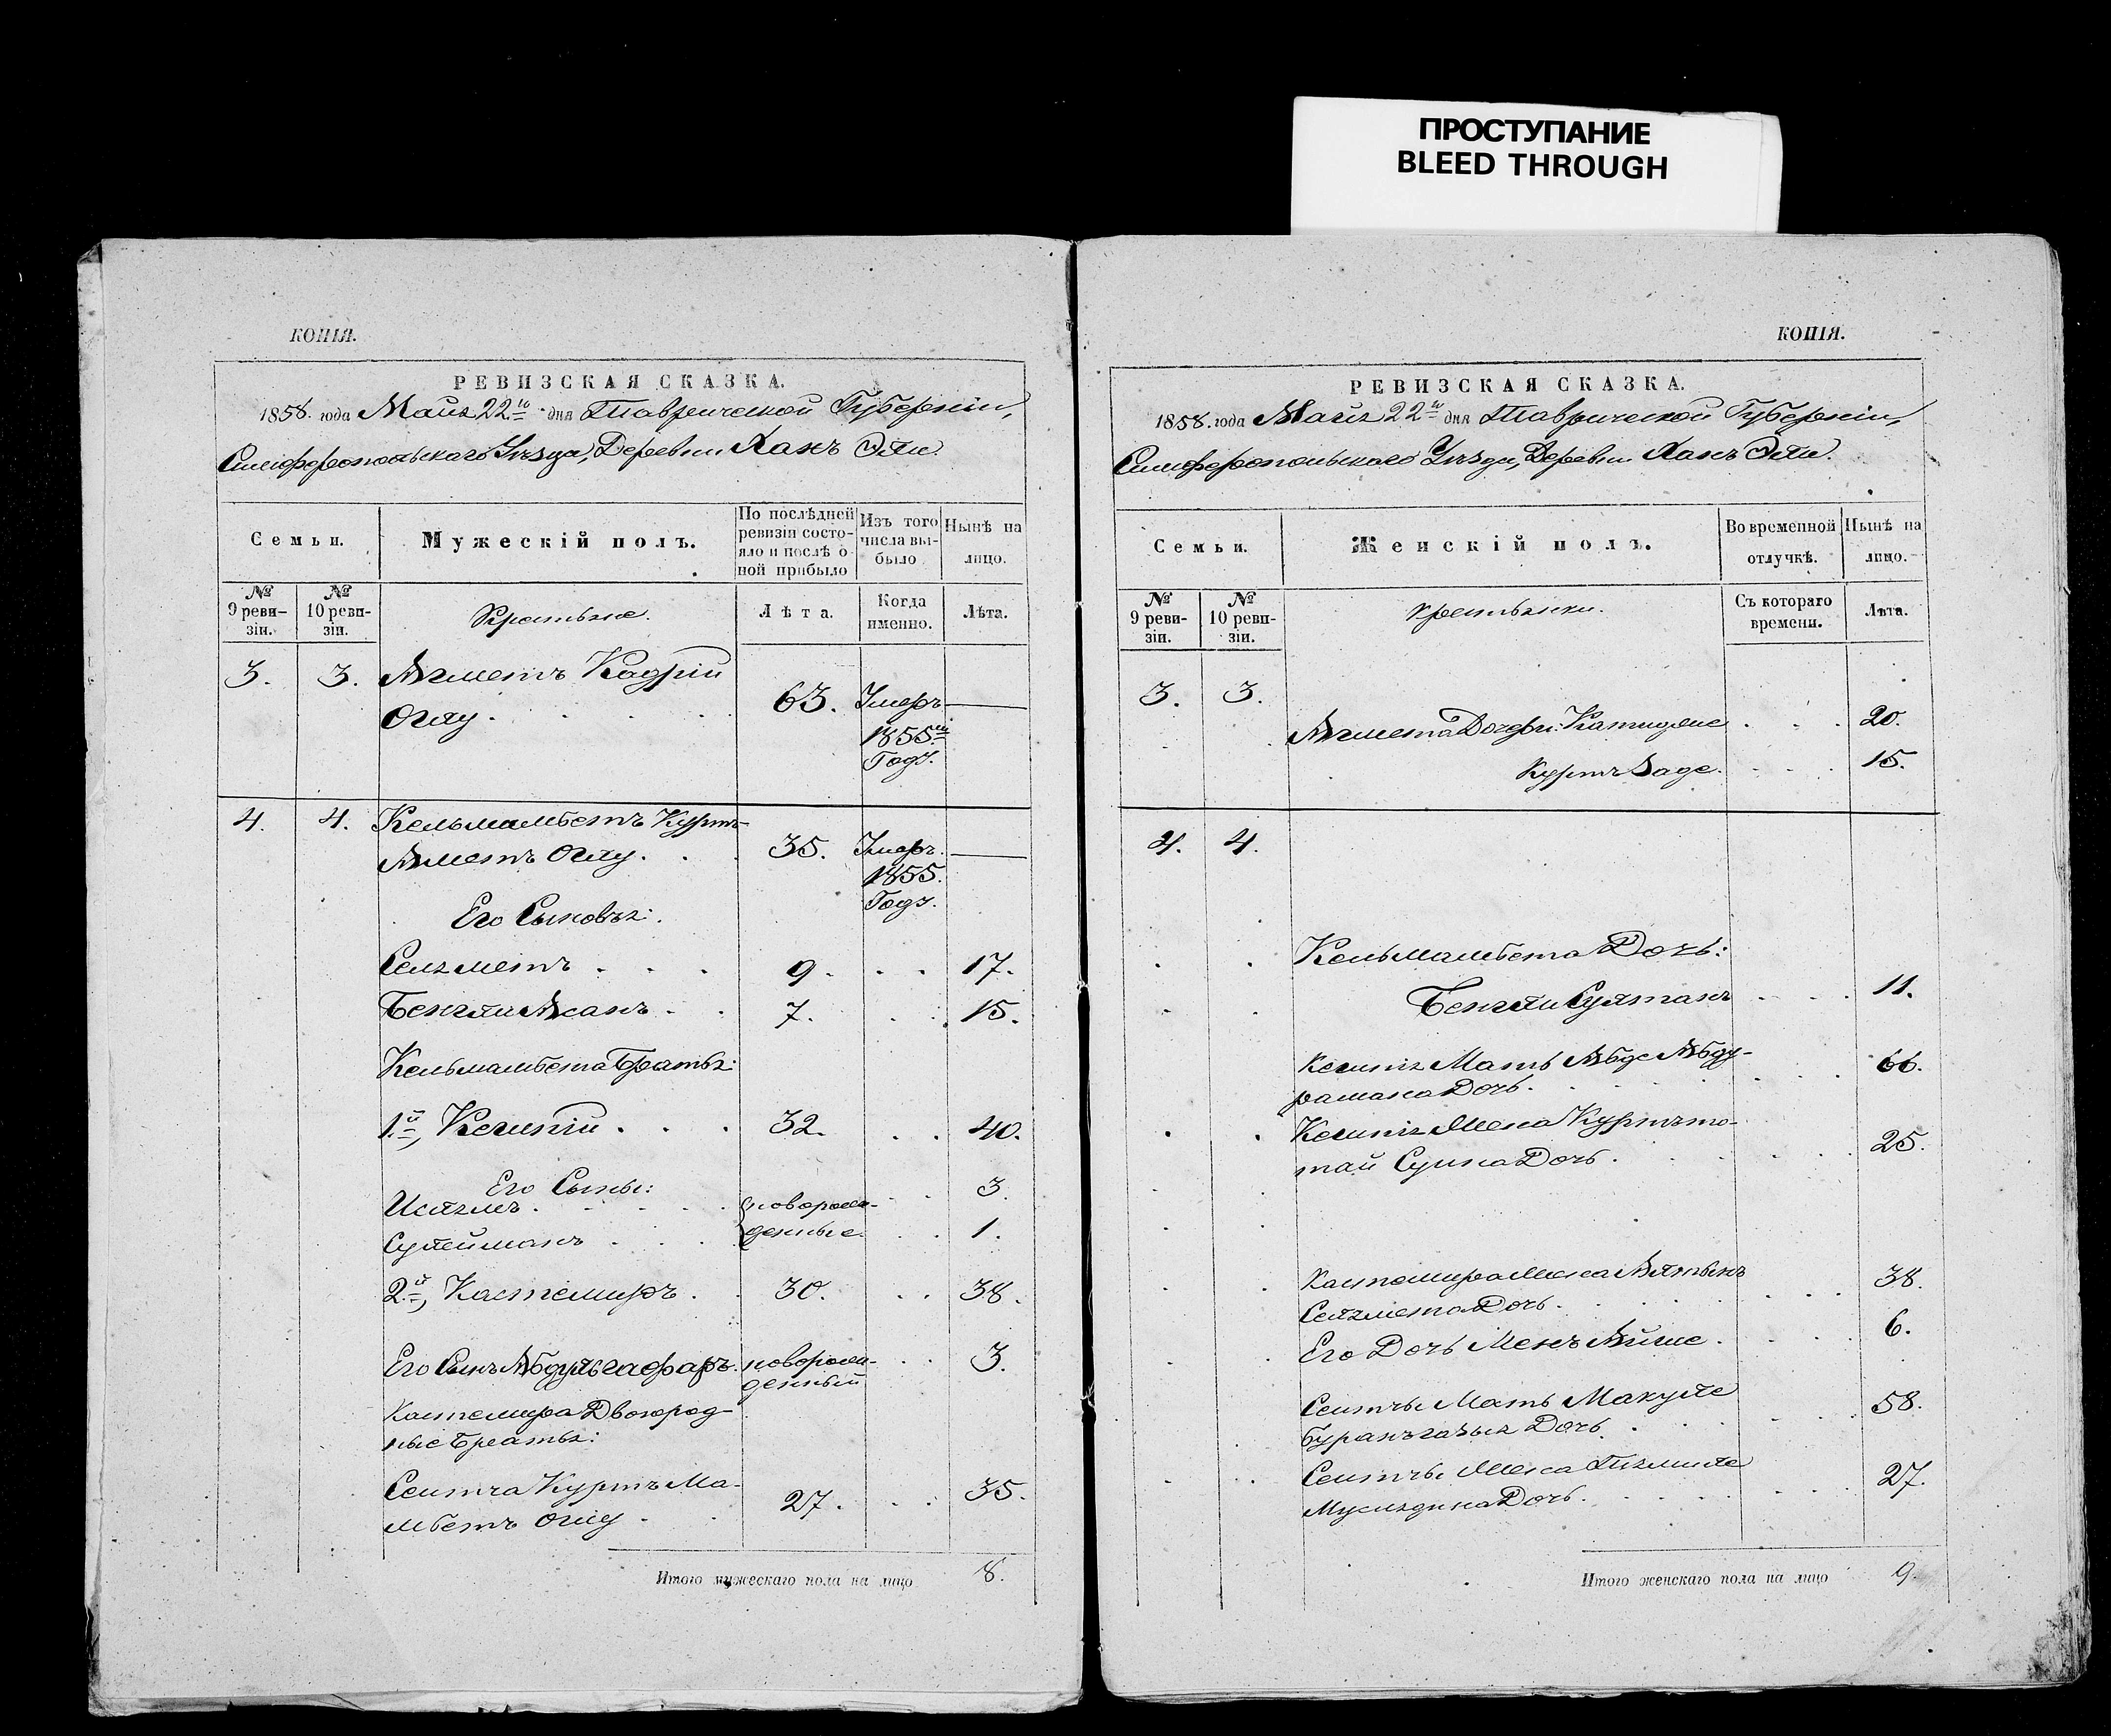 ПРОСТУПАНИЕ
BLEED THROUGH
КОПІЯ.
РЕВИЗСКАЯ СКАЗКА.
1858. года Маія 22го дня Таврической Губерніи,
Симферопольскаго Уѣзда, Деревни Ханъ Эли.
Семьи.
Мужескій полъ.
По послѣдней ревизіи состояло и послѣ оной прибыло
Изъ того числа выбыло
Нынѣ на лицо.
№ 9 ревизіи.
№ 10 ревизіи.
Крестьяне.
Лѣта.
Когда именно.
Лѣта.
3. 3. Ягметъ Кадрій
Оглу. 63. Умеръ
1855мъ
Году.
4. 4. Кельмамбетъ Куртъ
Аметъ Оглу. 35. Умеръ.
1855.
Году.
Его Сыновья:
Сеяметъ 9. 17.
Бенгли Асанъ 7. 15.
Кельмамбета Братья:
1й, Кешпій 32. 40.
Его Сыны:
Ислямъ новорож- 3.
Сулейманъ денные. 1.
2й, Кастемиръ 30. 38.
Его Сынъ Абдульгафаръ новорож- 3.
денный
Кастемира Двоюрод-
ные Братья:
Сеитча Куртъ Ма-
мбетъ Оглу 27. 35.
Итого мужескаго пола на лицо 8.
КОПІЯ.
РЕВИЗСКАЯ СКАЗКА.
1858. года Маія 22го дня Таврической Губерніи,
Симферопольскаго Уѣзда, Деревни Ханъ Эли.
Семьи.
Женскій полъ.
Во временной отлучкѣ.
Нынѣ на лицо.
№ 9 ревизіи.
№ 10 ревизіи.
Крестьянки.
Съ котораго времени.
Лѣта.
3. 3.
Ягмета Дочери: 20.
Куртъ Заде. 15.
4. 4.
Кельмамбета Дочь:
Бенгли Султанъ 11.
Кешпія Мать Абде Абду-
рамана Дочь. 66.
Кешпія Жена Куртъто-
тай Дочь. 25.
Кастемира Жена Алтынъ 38.
Сеямета Дочь.
Его Дочь Менъ Айше. 6.
Сеитчи Мать Макуле 58.
Буранъгазыя Дочь.
Сеитчи Жена 27.
Мусядина Дочь.
Итого женскаго пола на лицо 9.